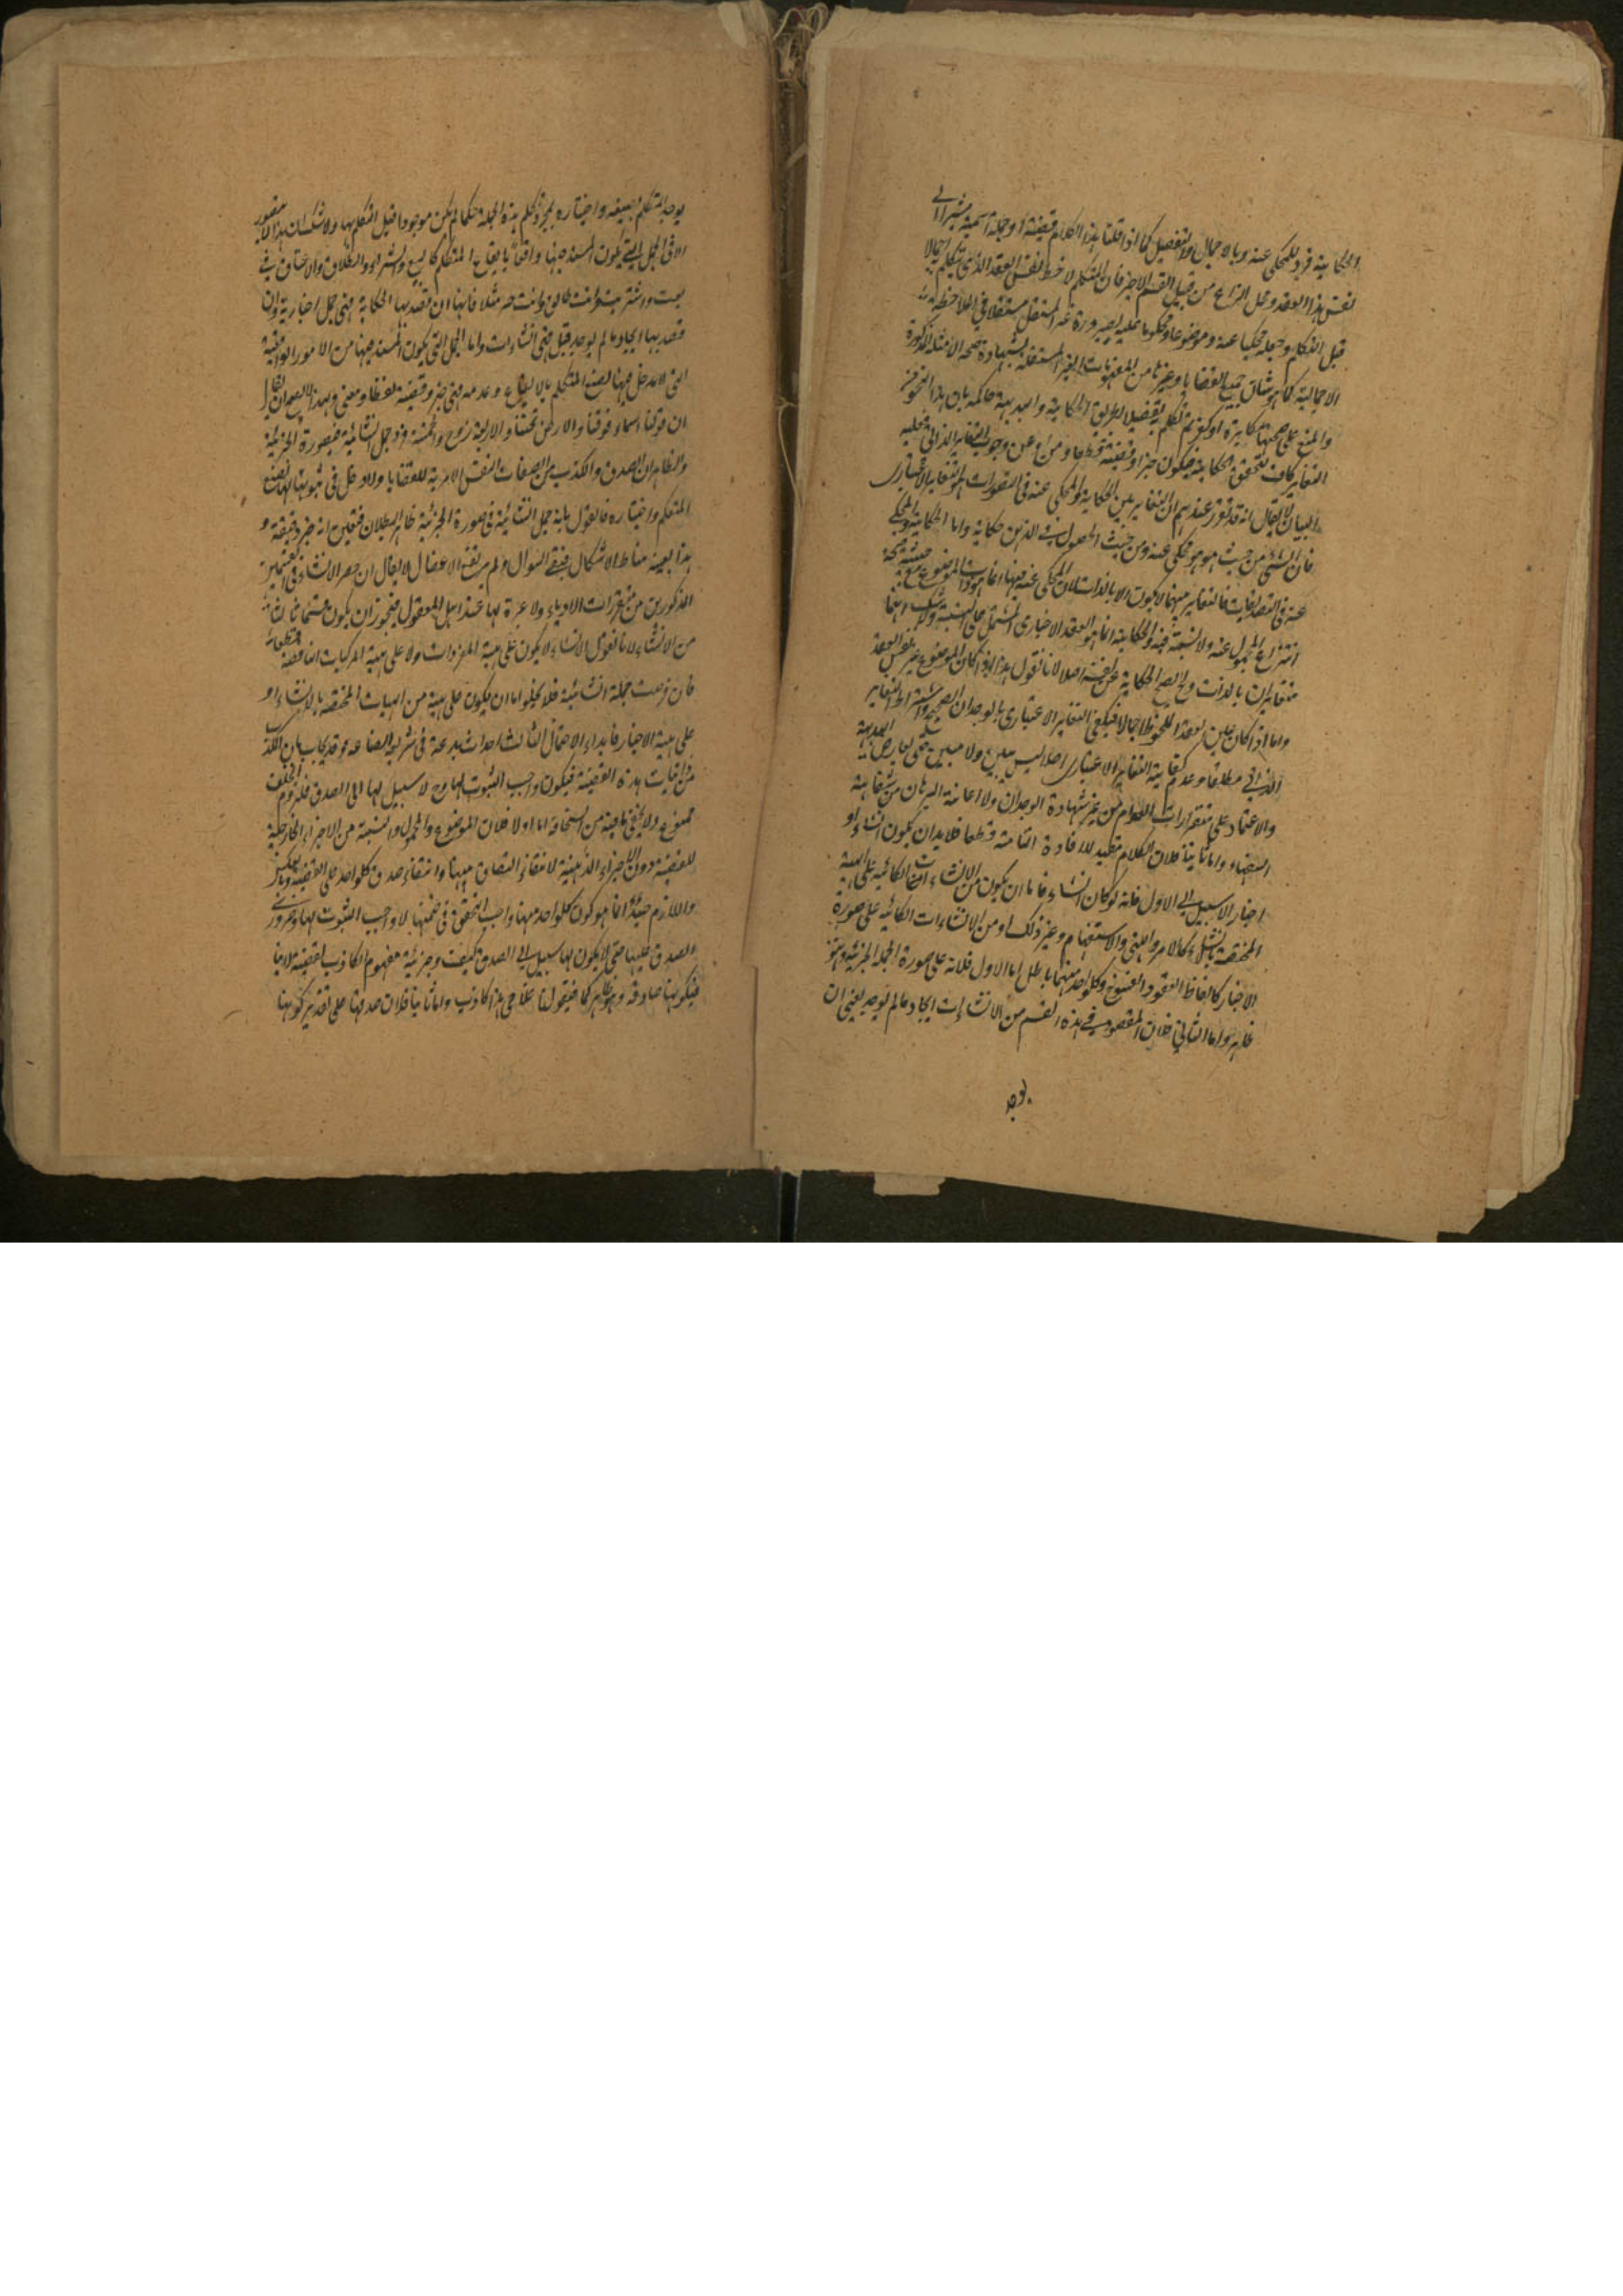 والحكاية فرد للمحكى عنه وبالاجمال والتفصيل كما اذا قلنا هذا الكلام قضية او جملة اسمية مشيرا الى
نفس هذا العقد ومحل النزاع من قبيل القسم الاخير فان المتكلم لاحظ نفس العقد الذى يتكلم اجمالا
قبل التكلم وجعله محكيا عنه وموضوعا ومحكوما عليه لصيرورة غير المستقل مستقلا فى الملاحظة
الاجمالية كما هو شان جميع القضايا وغيرها من المفهومات الغير المستقلة بشهادة صحة الامثلة المذكورة
والمنع على صحتها مكابرة ثم تكلم بتفصيل بطريق الحكاية والبديهة حاكمة بان هذا النحو من
التغاير كاف لتحقق الحكاية فيكون خبرا وقضية قطعا ومن ادعى وجوب التغاير الذاتى فعليه
البيان لا يقال انه قد تقرر عندهم ان التغاير بين الحكاية والمحكى عنه فى التصورات هو التغاير الاعتبارى
فان الشئ من حيث هو هو محكى عنه ومن حيث الحصول فى الذهن حكاية واما الحكاية والمحكى
عنه فى التصديقات فالتغاير بينهما لا يكون الا بالذات لان المحكى عنه فيها انما هو ذات الموضوع مع حيثية صحة
انتزاع المحمول عنه ولا نسبة فيه والحكاية انما هو العقد الاخبارى المشتمل على النسبة ولا شك انهما
متغايران بالذات وح لا يصح الحكاية عن نفسه اصلا لانا نقول هذا اذا كان الموضوع غير نفس العقد
واما اذا كان عين العقد الملحوظ اجمالا فيكفى التغاير الاعتبارى بالوجدان الصحيح واشتراط التغاير
الذاتى مطلقا وعدم كفاية التغاير الاعتبارى اصلا ليس ببين ولا مبين حتى يعارض البديهة
والاعتماد على مقررات القوم من غير شهادة الوجدان ولا اعانة البرهان من شفاهة
السفهاء واما ثانيا فلان الكلام مفيد للافادة التامة قطعا فلا بد ان يكون انشاء او
اخبارا لا سبيل الى الاول فلانه لو كان انشاء فاما ان يكون من الانشاءات الكائنة على الهيئة
المختصة بالانشاء كالامر والنهى والاستفهام وغير ذلك او من الانشاءات الكائنة على صورة
الاخبار كالفاظ العقود والفسوخ وكلواحد منهما باطل اما الاول فلانه على صورة الجملة الخبرية وهو
ظاهر واما الثانى فلان المقصود فى هذه القسم من الانشاءات ايجاد ما لم يوجد يعنى ان
يوجد
يوجد المتكلم بصيغه واختياره بمجرد تكلم هذه الجملة حكما لم يكن موجودا قبل التكلم بها ولا شك ان هذا لا يتصور
الا فى الجمل التى يكون المسند فيها واقعا بايقاع المتكلم كالبيع والشراء والطلاق والاعتاق فى
بعت واشتريت وانت طالق وانت حر مثلا فانها ان قصد بها الحكاية فهى جمل اخبارية وان
قصد بها ايجاد ما لم يوجد قبل فهى انشاءات واما الجمل التى يكون المسند فيها من الامور الواقعية
التى لا مدخل فيها لصنع المتكلم بالايقاع وعدمه فهى خبر وقضية لفظا ومعنى ولهذا لا يصح ان يقال
ان قولنا السماء فوقنا والارض تحتنا والاربعة زوج والخمسة فرد جمل انشائية فى صورة الخبرية
والظاهر ان الصدق والكذب من الصفات النفس الامرية للقضايا ولا دخل فى ثبوتها لها لصنع
المتكلم واختياره فالقول بانه جمل انشائية فى صورة الخبرية ظاهر البطلان فتعين انه خبر وقضية و
هذا بعينه مناط الاشكال فبقى السوال ولم يرتفع الاعضال لا يقال ان حصر الانشاء فى القسمين
المذكورين من مقررات الادباء ولا عبرة لها عند اهل المعقول فيجوز ان يكون قسما ثالثا
من الانشاء لانا نقول الانشاء لا يكون على هيئة المفردات ولا على هيئة المركبات الناقصة قطعا
فان فرضت جملة انشائية فلا يخلو اما ان يكون على هيئة من الهيئات المختصة بالانشاء او
على هيئة الاخبار فابداء الاحتمال الثالث احداث بدعة فى شريعة الصناعة وقد يجاب بان الكذب
من ذاتيات هذه القضية فيكون واجب الثبوت لها وح لا سبيل لها الى الصدق فلزوم الخلف
ممنوع ولا يخفى ما فيه من السخافة اما اولا فلان الموضوع والمحمول والنسبة من الاجزاء الخارجية
للقضية دون الاجزاء الذهنية لانتفاء التصادق بينها وانتفاء صدق كلواحد على القضية وبالعكس
واللازم حينئذ انما هو كون كلواحد منها واجب التحقق فى ضمنها لا واجب الثبوت لها وضرورى
الصدق عليها حتى لا يكون لها سبيل الى الصدق كيف وجزئية مفهوم الكاذب لقضية لا ينافى
كونها صادقة وهو ظاهر كما فى قولنا هذا كاذب واما ثانيا فلان صدقها على تقدير كونها